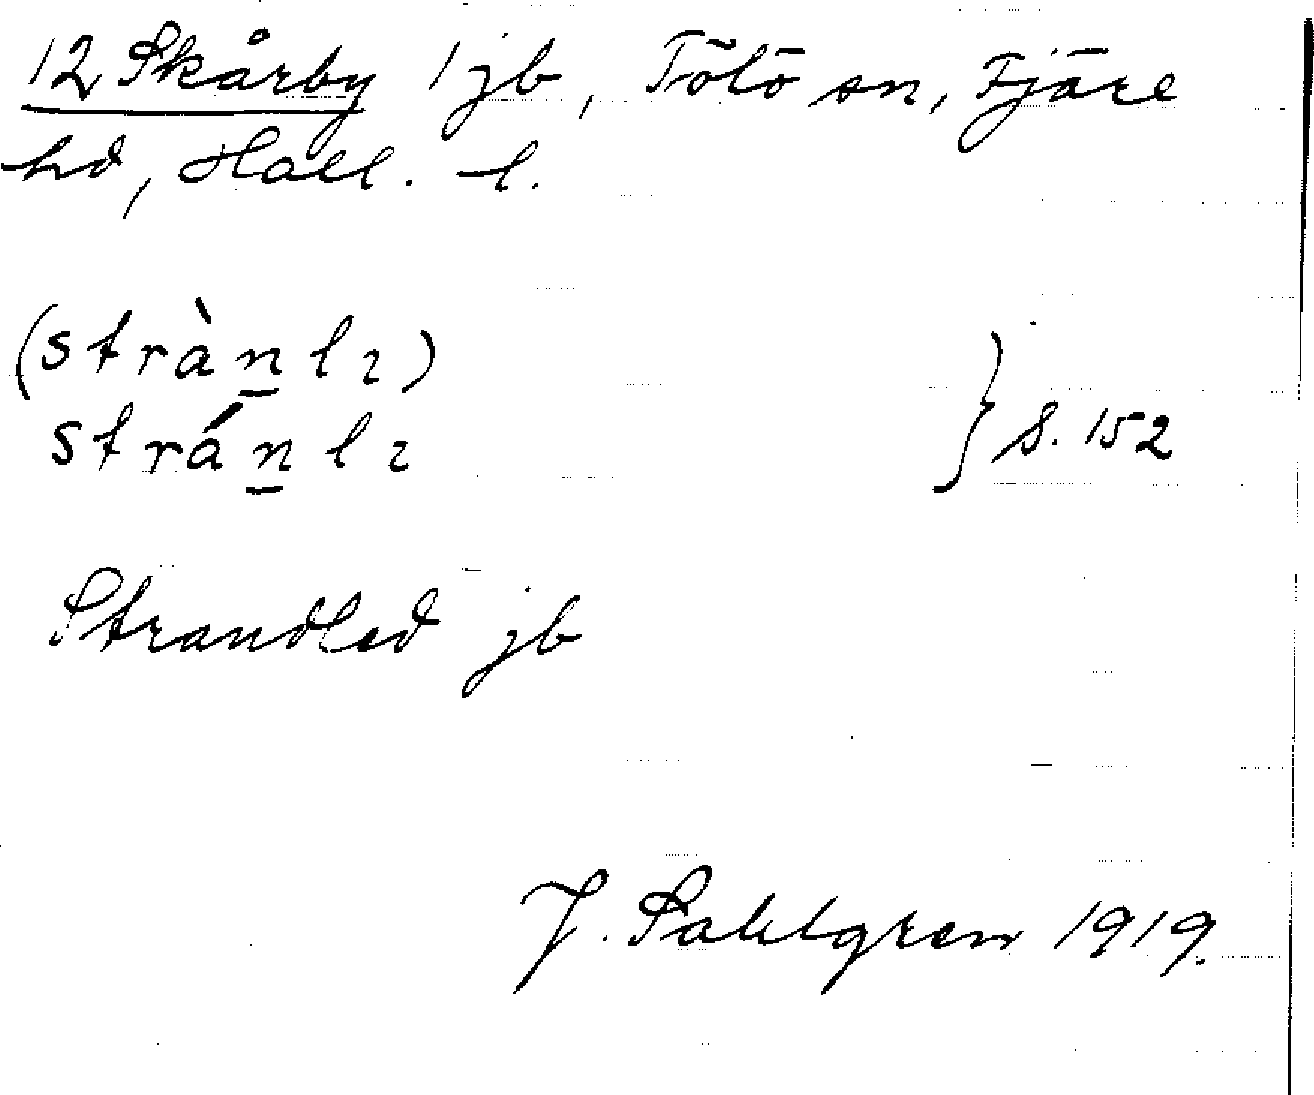 12 Skårby 1 jb, Tölö sn, Fjäre
hd, Hall. l.
(stràn̲lı)
strán̲lı } S. 152
Strandled jb
J. Sahlgren 1919.